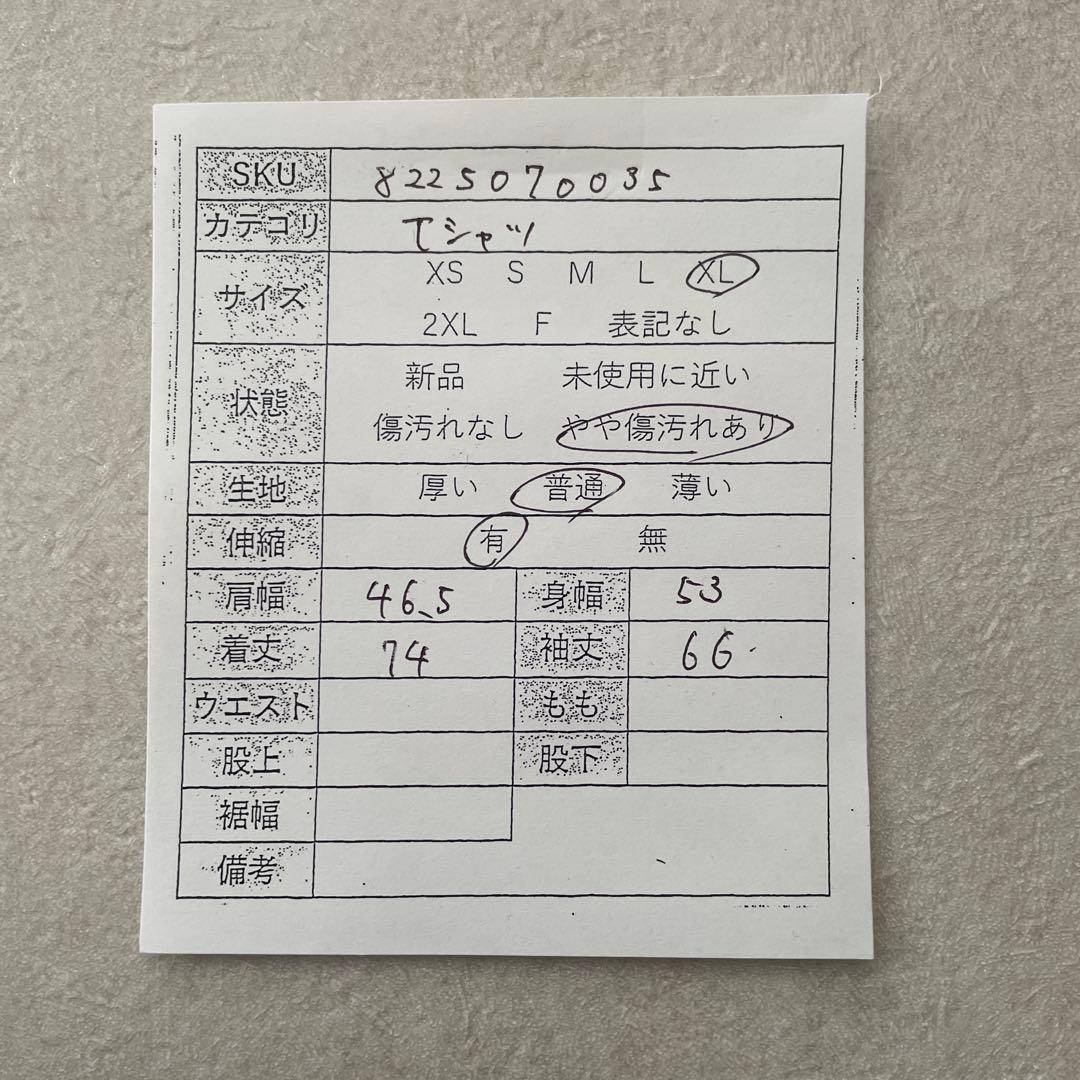 SKU 8225070035
カテゴリ Tシャツ
サイズ XS S M L XL
2XL F 表記なし
状態 新品 未使用に近い
傷汚れなし やや傷汚れあり
生地 厚い 普通 薄い
伸縮 有 無
肩幅 46.5 身幅 53
着丈 74 袖丈 66
ウエスト もも
股上 股下
裾幅
備考